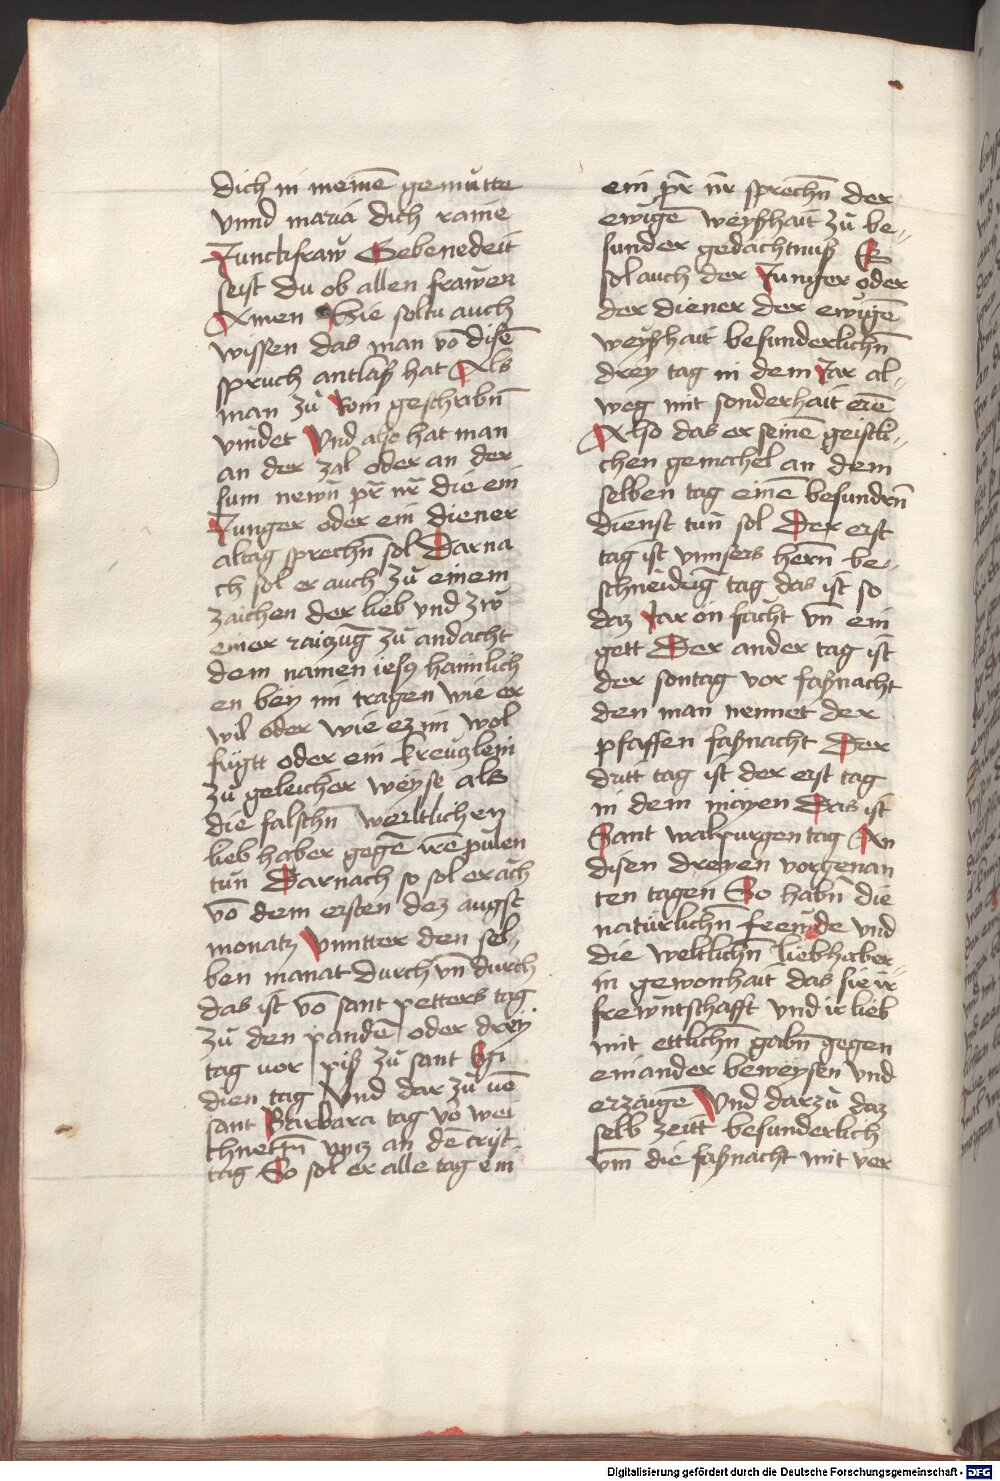 dich in meinē gemůtte
vnnd maria dich raine
Junckfraw Gebenedeit
seist du ob allen frawen
Amen Hie soltu auch
wissen das man vō disē
spruch antlaß hat Als
man zů Rom geschrabn̄
vindet Vnd also hat man
an der zal oder an der
sum newn pr̄ nr̄ die ein
Junger oder ein diener
altag sprechn̄ sol Darna
ch sol er auch zů einem
zaichen der lieb vnd zů
einer raiczūg zů andacht
dem namen iesus haimlich
en bey im tragen wie er
wil oder wie ez im wol
fůgtt oder ein kreuczlein
zů geleicher weyse als
die falschn̄ werltlichen
lieb haber gegē irē pulen
tůn Darnach so sol er auch
vō dem ersten dez augst
monatz vnntter den sel„
ben manat durch vn̄ durch
das ist vō sant petters tag
zů den pandē oder drey
tag vor piß zů sant Egi
dien tag Vnd dar zů vō
sant Barbara tag vō wei
chnettn̄ vncz an dē crist
tag So sol er alle tag ein
ein pr̄ nr̄ sprechn̄ der
ewigē weyßhait zů be„
sunder gedachtnuß Er
sol auch der Junger oder
der diener der ewigē
weyßhait besunderlichn̄
drey tag in dem Jar al„
weg mit sonderhait erē
Also das er seinē geistli„
chen gemahel an dem
selben tag einē besundrn̄
dienst tun sol Der erst
tag ist vnnsers hern̄ be„
schneidūg tag das ist so
daz Jar on facht vn̄ ein
gett Der ander tag ist
der sontag vor faßnacht
den man nennet der
pfaffen faßnacht Der
dritt tag ist der erst tag
in dem mayen Das ist
Sant walpurgen tag An
disen dreyen vorgenan
ten tagen So habn̄ die
naturlichn̄ freunde vnd
die weltlichn̄ liebhaber„
in gewonhait das sie ir
frewntschafft vnd ir lieb
mit ettlichn̄ gabn̄ gegen
einander beweysen vnd
erzaugē Vnd darzů daz
selb zeitt besunderlich
vm̄ die faßnacht mit ver
Digitalisierung gefördert durch die Deutsche Forschungsgemeinschaft - DFG